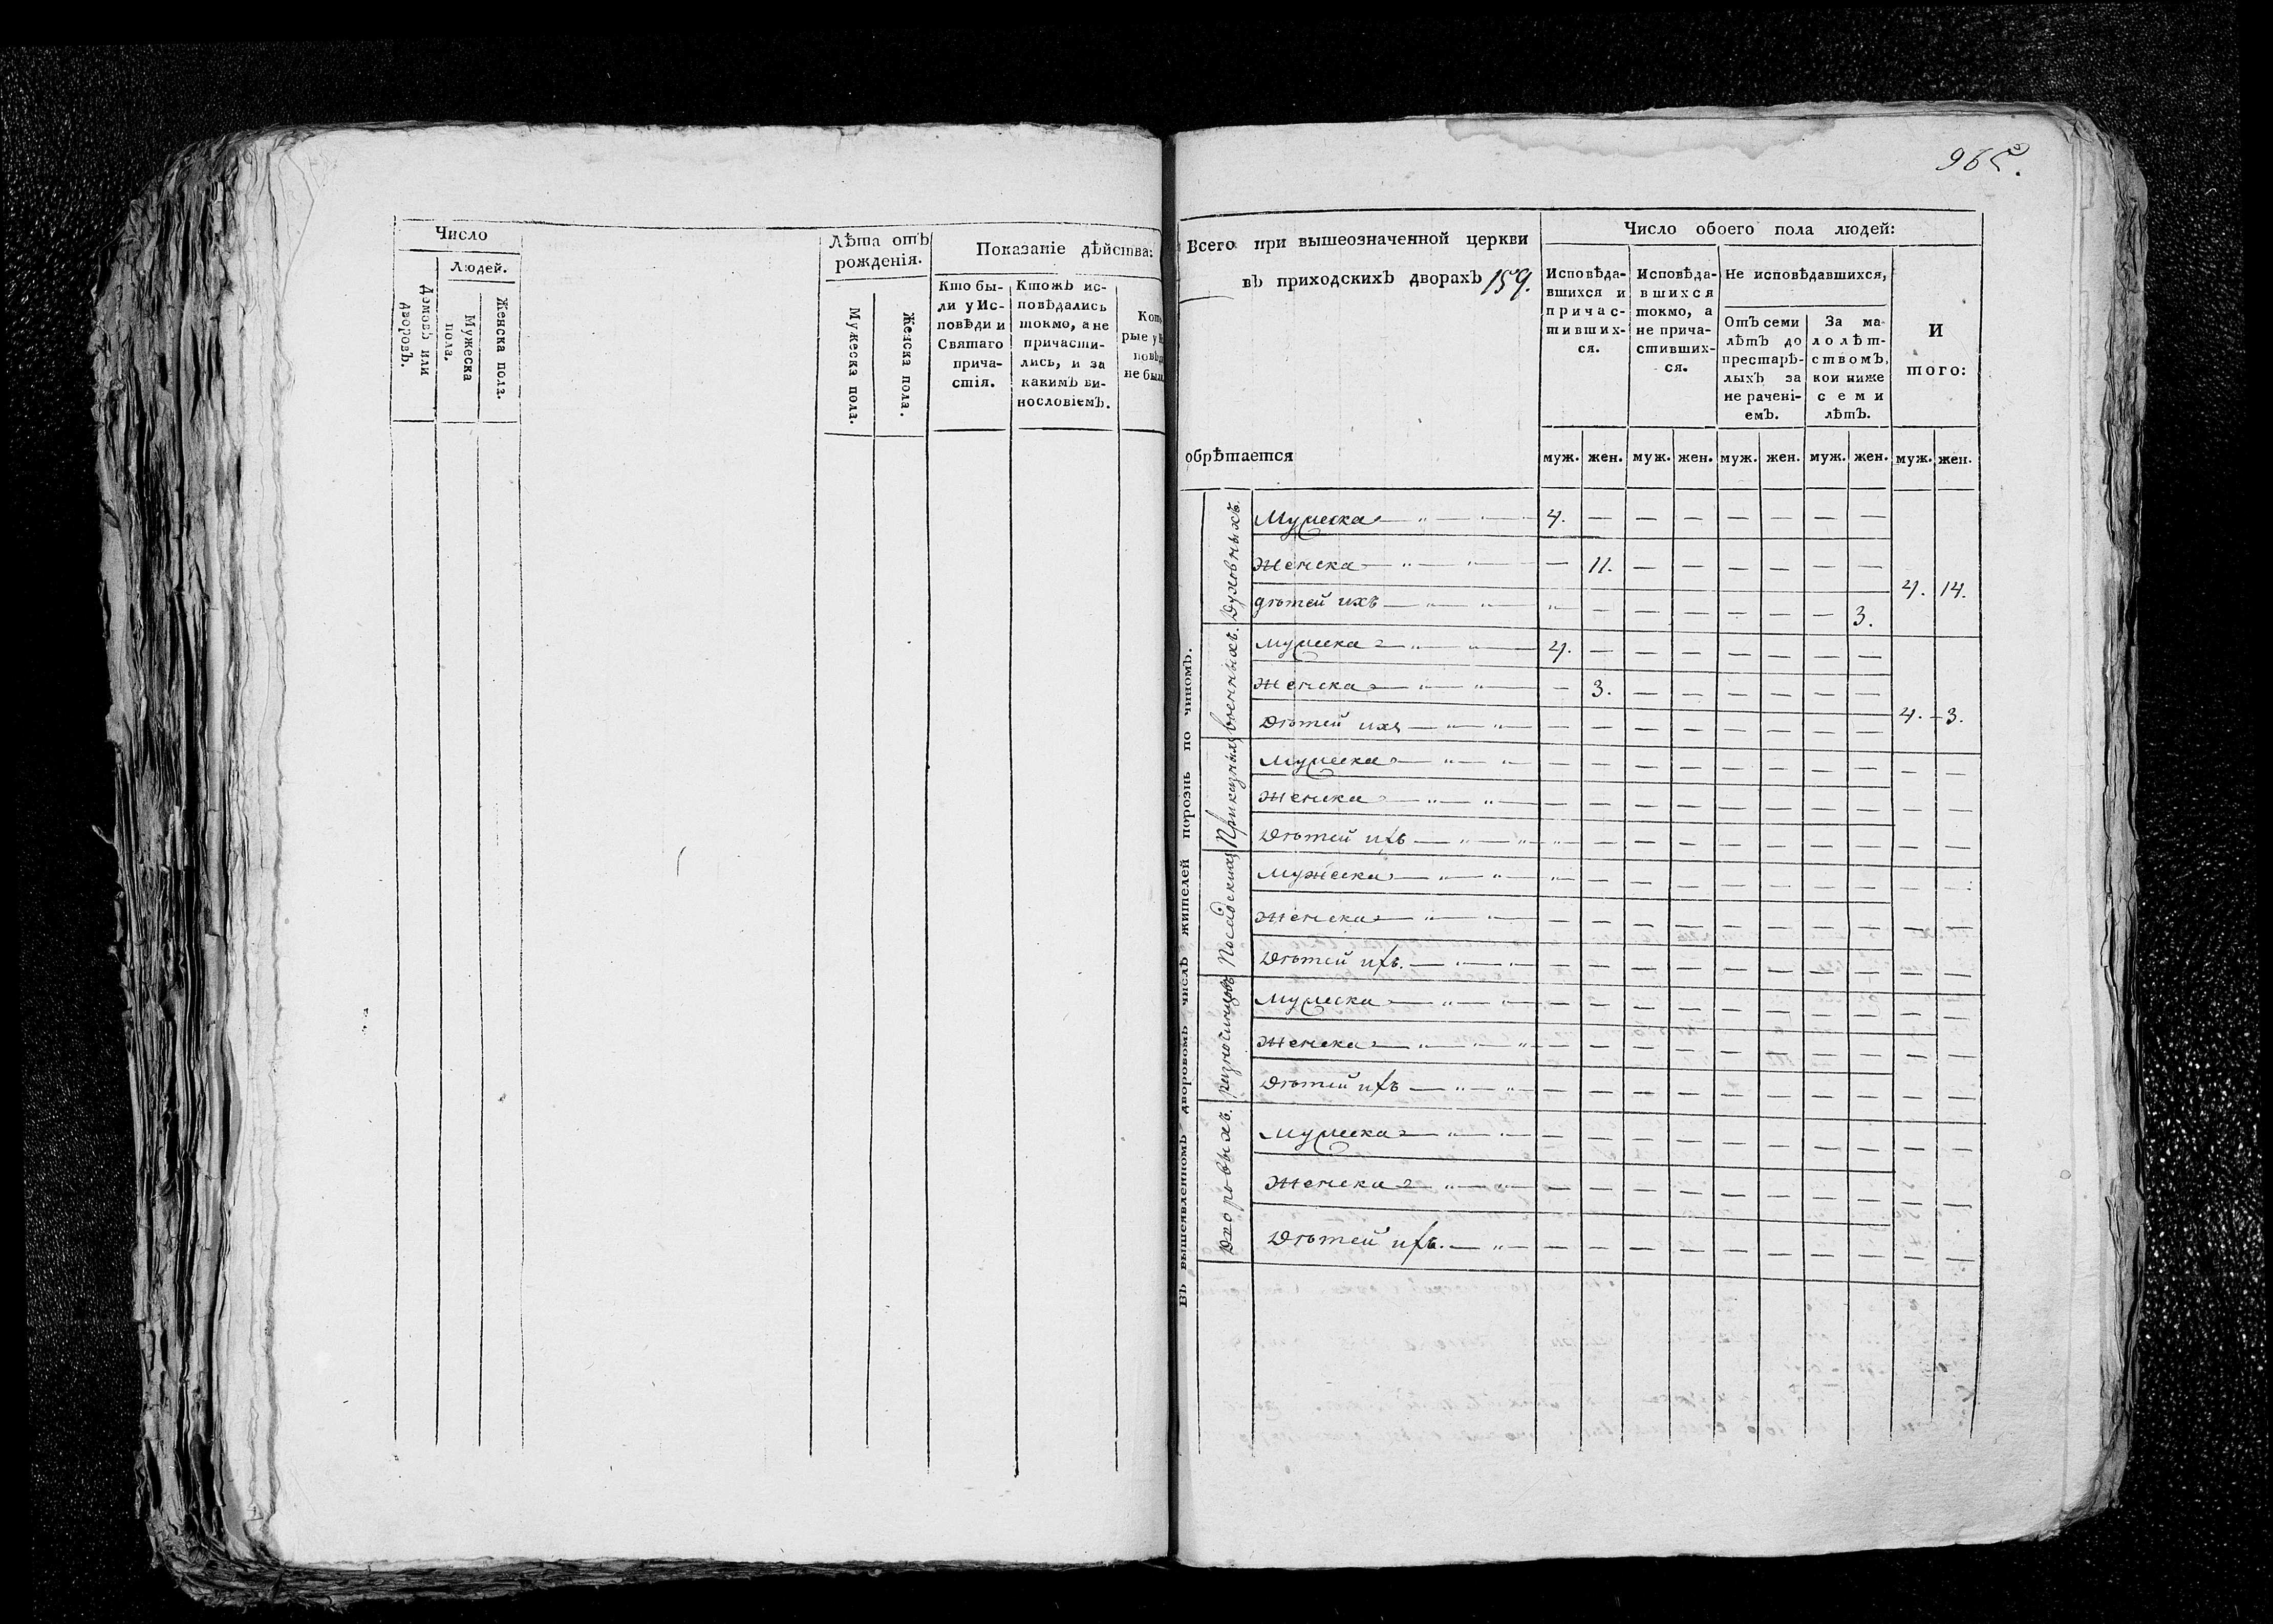 Число
Людей.
Домовъ или
дворовъ.
Мужеска
пола.
Женска пола.
Лѣта отъ
рожденія.
Мужеска пола.
Женска пола.
Показаніе дѣйства:
Кто бы-
ли у Ис-
повѣди и
Святаго
прича-
стія.
Ктожъ ис-
повѣдались
токмо, а не
причасти-
лись, и за
какимъ ви-
нословіемъ.
рые у
не был
Всего при вышеозначенной церкви
въ приходскихъ дворахъ 159.
обрѣтается
Число обоего пола людей:
Исповѣда-
вшихся и
причас-
тивших-
ся.
Исповѣда-
вшихся
токмо, а
не прича-
стивших-
ся.
Не исповѣдавшихся,
Отъ семи
лѣтъ до
престарѣ-
лыхъ за
не рачені-
емъ.
За ма-
лолѣт-
ствомъ,
кои ниже
семи
лѣтъ.
И
того:
муж. жен. муж. жен. муж. жен. муж. жен. муж. жен.
Въ вышеявленномъ дворовомъ числѣ жителей порознь по чиномъ.
Духовныхъ.
Мужеска — " — " — 4. — — — — — — —
Женска — " — " — — 11. — — — — — —
дѣтей ихъ — " — " " — — — — — — 3.
4. 14.
Военныхъ.
Мужеска — " — " — 4. — — — — — — —
Женска — " — " — — 3. — — — — — —
Дѣтей ихъ — " — " — — — — — — — —
4. — 3.
Приказныхъ
Мужеска — " — " — — — — — — — — — — —
Женска — " — " — — — — — — — — — — —
Дѣтей ихъ — " — " — " — — — — — — — — —
Посадскихъ
Мужеска — " — " — " — — — — — — — —
Женска — " — " — — — — — — — — — — —
Дѣтей ихъ. — " — " — — — — — — — — — —
разночинцовъ
Мужеска — " — " — — — — — — — — — — —
Женска — " — " — " — — — — — — — — — —
Дѣтей ихъ — " — " — — — — — — — — — —
Дворовыхъ.
Мужеска — " — " — — — — — — — — — — —
Женска — " — " — — — — — — — — — —
Дѣтей ихъ. — " — — — — — — — — — — —